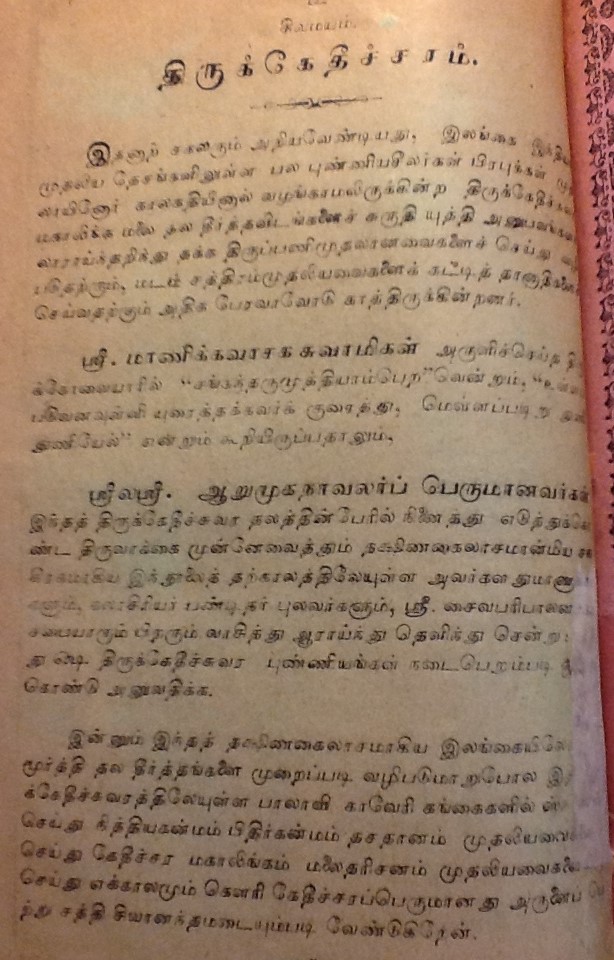 சிவமயம்.
திருக்கேதீச்சரம்.
இதனாற் சகலரும் அறியவேண்டியது, இலங்கை
முதலிய தேசங்களிலுள்ள பல புண்ணியசீலர்கள் பிரபுக்கள்
லாயினோர் காலகதியினால் வழங்காமலிருக்கின்ற
மகாலிங்க மலை தல தீர்த்தவிடங்களைச் சுருதி யுத்தி
லாராய்ந்தறிந்து தக்க திருப்பணிமுதலானவைகளைச் செய்து
மடம் சத்திரம்முதலியவைகளைக் கட்டித்
செய்வதற்கும் அதிக பேரவாவோடு காத்திருக்கின்றனர்.
ஸ்ரீ. மாணிக்கவாசகசுவாமிகள் அருளிச்செய்த
க்கோவையாரில் வென்றும்,
யுரைத்தக்கவர்க் குரைத்து, மெல்லப்படிறு
துணியேல்" என்றும் கூறியிருப்பதாலும்,
ஸ்ரீலஸ்ரீ. ஆறுமுகநாவலர்ப் பெருமானவர்கள்
இந்தத் திருக்கேதீச்சுவர தலத்தின்பேரில் நினைத்து எடுத்துக்கொ
ண்ட திருவாக்கை முன்னேவைத்தும் தக்ஷிணகைலாசமான்மிய
இந்நூலைத் தற்காலத்திலேயுள்ள அவர்கள
பண்டிதர் புலவர்களும், ஸ்ரீ. சைவபரிபாலன
சபையாரும் பிறரும் வாசித்து ஆராய்ந்து தெளிந்து சென்று
திருக்கேதீச்சுவர புண்ணியங்கள் நடைபெறும்படி
கொண்டு அனுவதிக்க.
இன்னும் இந்தத் தக்ஷிணகைலாசமாகிய இலங்கையிலே
மூர்த்தி தல தீர்த்தங்களை முறைப்படி வழிபடுமாறுபோல
க்கேதீச்சுவரத்திலேயுள்ள பாலாவி காவேரி கங்கைகளில்
செய்து நித்தியகன்மம் பிதிர்கன்மம் தசதானம் முதலியவை
செய்து கேதீச்சர மகாலிங்கம் மலைதரிசனம் முதலியவைகளை
செய்து எக்காலமும் கௌரி கேதீச்சரப்பெருமானது அருளைப்
ற்று சத்தி சிவானந்தமடையும்படி வேண்டுகிறேன்.